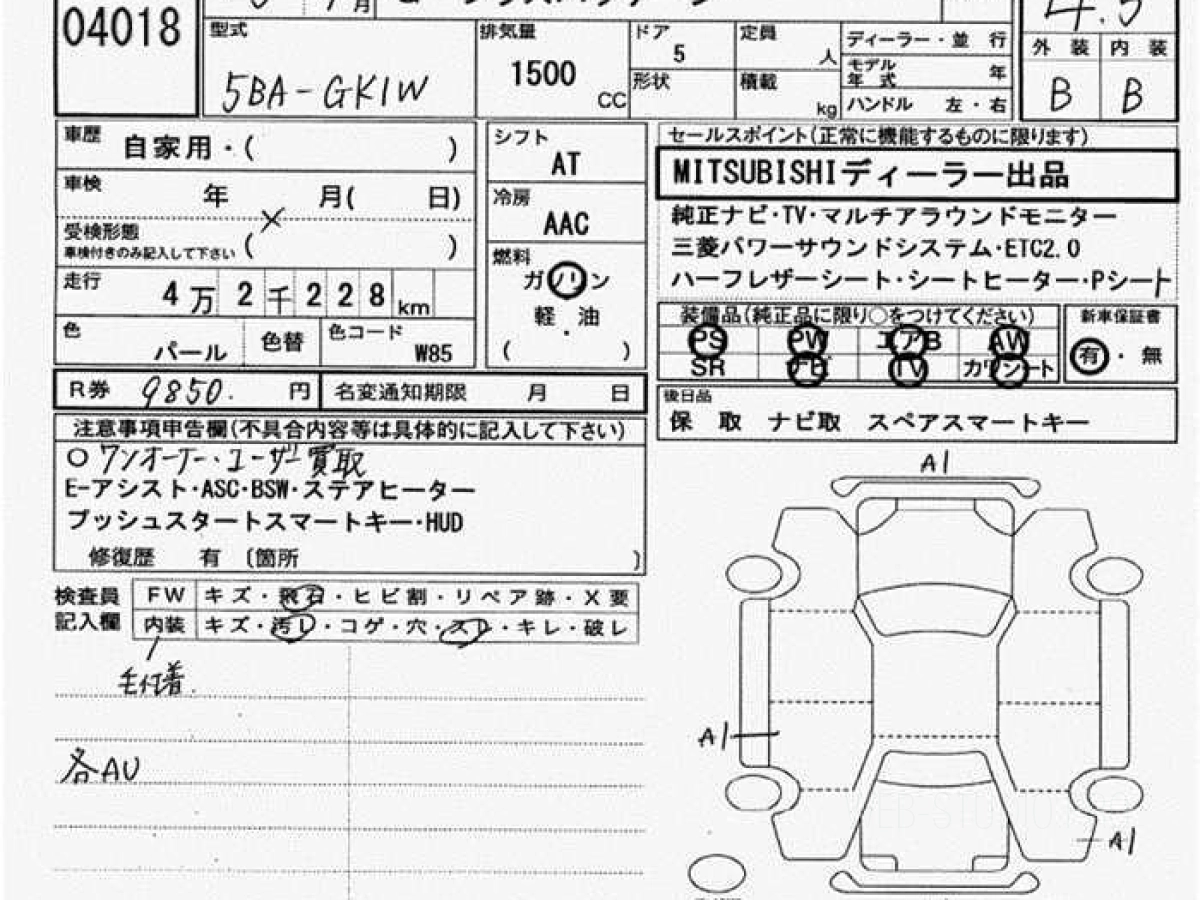 04018
月
4.5
型式
5BA-GK1W
排気量
1500
CC
ドア
5
形状
定員
人
積載
kg
ディーラー・並 行
モデル年式 年
ハンドル 左・右
外 装 内 装
B B
車歴
自家用・( )
車検
年 月( 日)
×
受検形態
車検付きのみ記入して下さい ( )
走行
4万2千228km
色
パール
色替
色コード
W85
シフト
AT
冷房
AAC
燃料
ガソリン
軽・油
( )
セールスポイント(正常に機能するものに限ります)
MITSUBISHIディーラー出品
純正ナビ・TV・マルチアラウンドモニター
三菱パワーサウンドシステム・ETC2.0
ハーフレザーシート・シートヒーター・Pシート
装備品(純正品に限り○をつけてください)
PS PW エアB AW
SR ナビ TV カワシート
新車保証書
有・無
R券 9850. 円
名変通知期限 月 日
後日品
保 取 ナビ取 スペアスマートキー
注意事項申告欄(不具合内容等は具体的に記入して下さい)
○ワンオーナー・ユーザー買取
E-アシスト・ASC・BSW・ステアヒーター
プッシュスタートスマートキー・HUD
修復歴 有 〔箇所 〕
検査員記入欄
FW キズ・飛石・ヒビ割・リペア跡・X要
内装 キズ・汚レ・コゲ・穴・スレ・キレ・破レ
毛付着.
各AU
A1
A1
A1